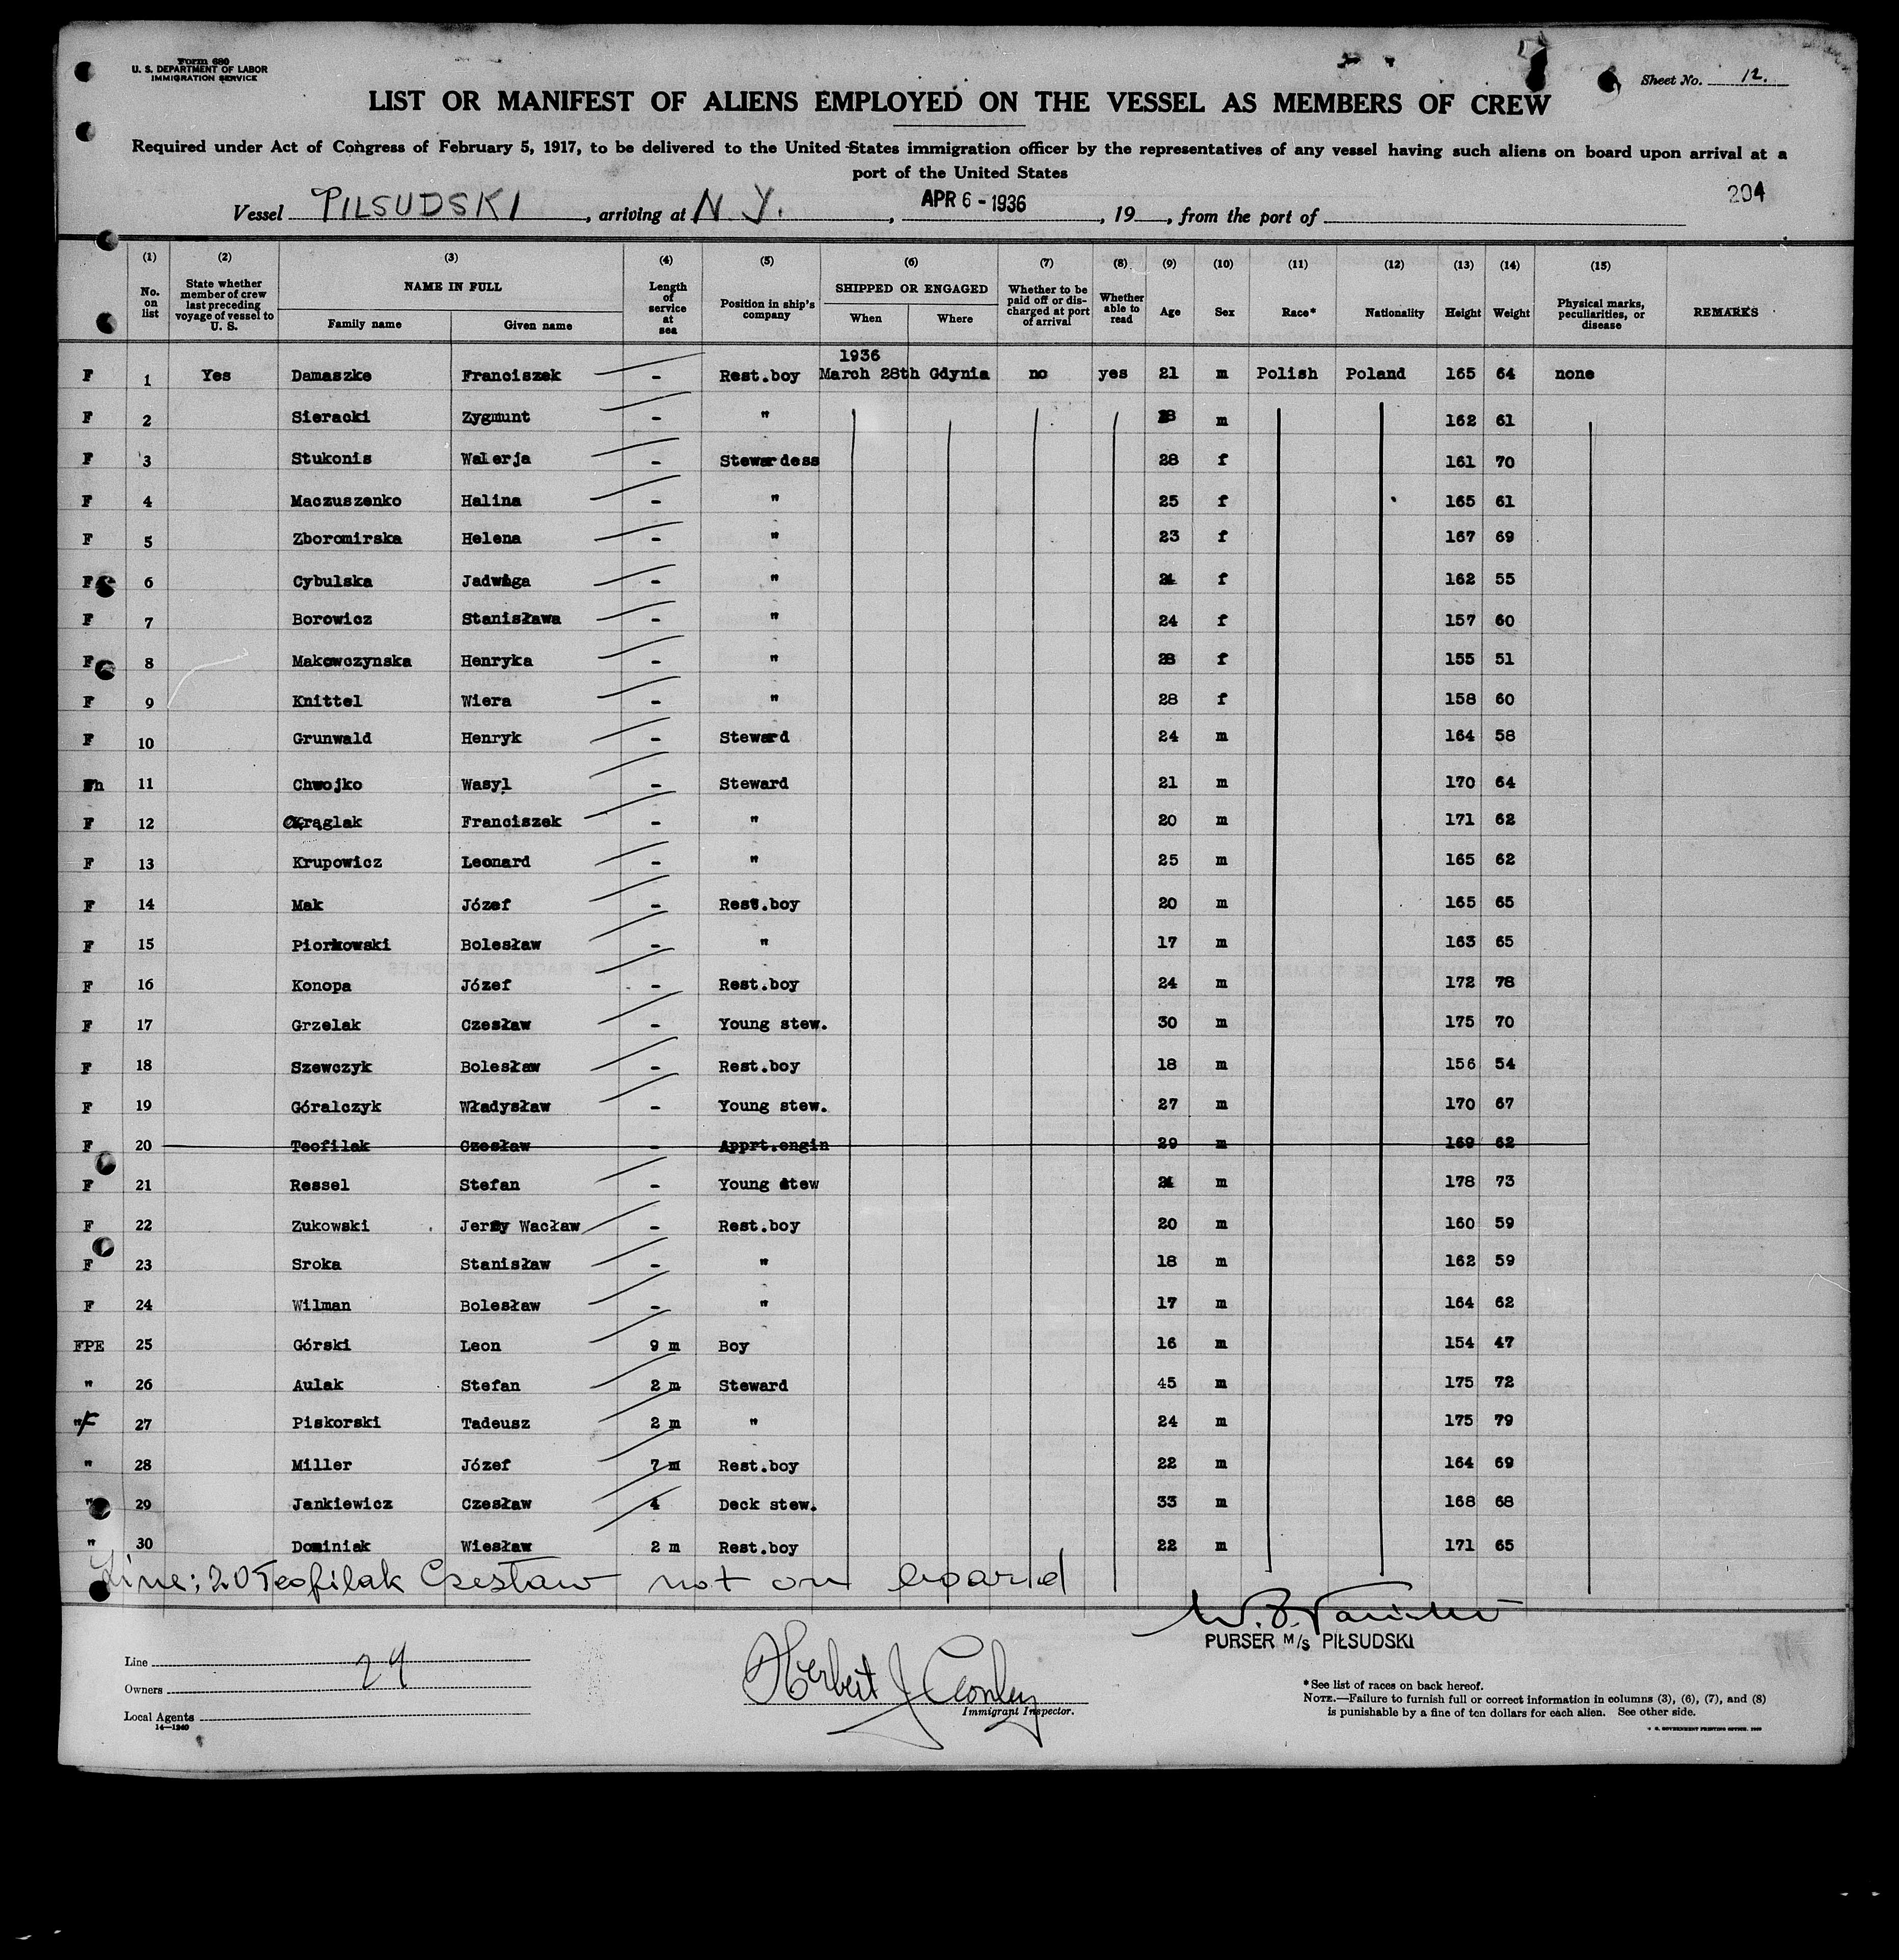 Form 680
U. S. DEPARTMENT OF LABOR
IMMIGRATION SERVICE
Sheet No. 12.
LIST OR MANIFEST OF ALIENS EMPLOYED ON THE VESSEL AS MEMBERS OF CREW
Required under Act of Congress of February 5, 1917, to be delivered to the United States immigration officer by the representatives of any vessel having such aliens on board upon arrival at a
port of the United States
204
Vessel PILSUDSKI, arriving at N. Y., APR 6 - 1936, 19, from the port of
(1) (2) (3) (4) (5) (6) (7) (8) (9) (10) (11) (12) (13) (14) (15)
No. on list State whether member of crew last preceding voyage of vessel to U. S. NAME IN FULL Family name Given name Length of service at sea Position in ship's company SHIPPED OR ENGAGED When Where Whether to be paid off or discharged at port of arrival Whether able to read Age Sex Race* Nationality Height Weight Physical marks, peculiarities, or disease REMARKS
1936
F 1 Yes Damaszke Franciszek - Rest.boy March 28th Gdynia no yes 21 m Polish Poland 165 64 none
F 2 Sieracki Zygmunt - " m 162 61
F 3 Stukonis Walerja - Stewardess 28 f 161 70
F 4 Maczuszenko Halina - " 25 f 165 61
F 5 Zboromirska Helena - " 23 f 167 69
F 6 Cybulska Jadwiga - " f 162 55
F 7 Borowicz Stanisława - " 24 f 157 60
F 8 Makowczynska Henryka - " 28 f 155 51
F 9 Knittel Wiera - " 28 f 158 60
F 10 Grunwald Henryk - Steward 24 m 164 58
11 Chwojko Wasyl - Steward 21 m 170 64
F 12 Krąglak Franciszek - " 20 m 171 62
F 13 Krupowicz Leonard - " 25 m 165 62
F 14 Mak Józef - Rest.boy 20 m 165 65
F 15 Piorkowski Bolesław - " 17 m 163 65
F 16 Konopa Józef - Rest.boy 24 m 172 78
F 17 Grzelak Czesław - Young stew. 30 m 175 70
F 18 Szewczyk Bolesław - Rest.boy 18 m 156 54
F 19 Góralczyk Władysław - Young stew. 27 m 170 67
F 20 Teofilak Czesław - Apprt.engin 29 m 169 62
F 21 Ressel Stefan - Young stew m 178 73
F 22 Zukowski Jerzy Wacław - Rest.boy 20 m 160 59
F 23 Sroka Stanisław - " 18 m 162 59
F 24 Wilman Bolesław - " 17 m 164 62
FPE 25 Górski Leon 9 m Boy 16 m 154 47
" 26 Aulak Stefan 2 m Steward 45 m 175 72
" F 27 Piskorski Tadeusz 2 m " 24 m 175 79
" 28 Miller Józef 7 m Rest.boy 22 m 164 69
" 29 Jankiewicz Czesław 4 Deck stew. 33 m 168 68
" 30 Dominiak Wiesław 2 m Rest.boy 22 m 171 65
Line: 20 Teofilak Czesław not on board
PURSER M/S PIŁSUDSKI
Line
Owners
Local Agents
14—1240
29
Herbert J Conley
Immigrant Inspector.
*See list of races on back hereof.
NOTE.—Failure to furnish full or correct information in columns (3), (6), (7), and (8)
is punishable by a fine of ten dollars for each alien. See other side.